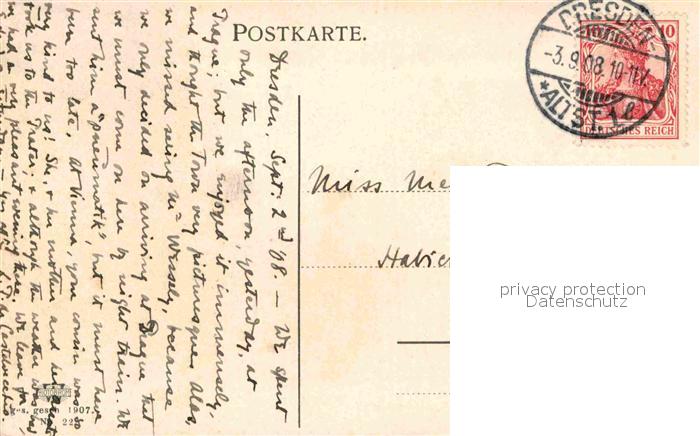 POSTKARTE.
DRESDEN-
-3.9.08.10-11V.
*ALTST.1ℓ
10 10
DEUTSCHES REICH
Dresden, Sept: 2nd '08. — We spent
only the afternoon, yesterday, at
Prague; but we enjoyed it immensely,
and thought the Town very picturesque. Alas,
we missed seeing Mr Wessely, because
we only decided on arriving at Prague that
we must come on here by night train. We
sent him a "pneumatik", but it must have
been too late. At Vienna, your cousin was so
very kind to us! She, & her mother and
took us to the Prater; & although the weather was bad,
we had a very pleasant evening there. We leave for
Miss
privacy protection
Datenschutz
ges. gesch 1907.